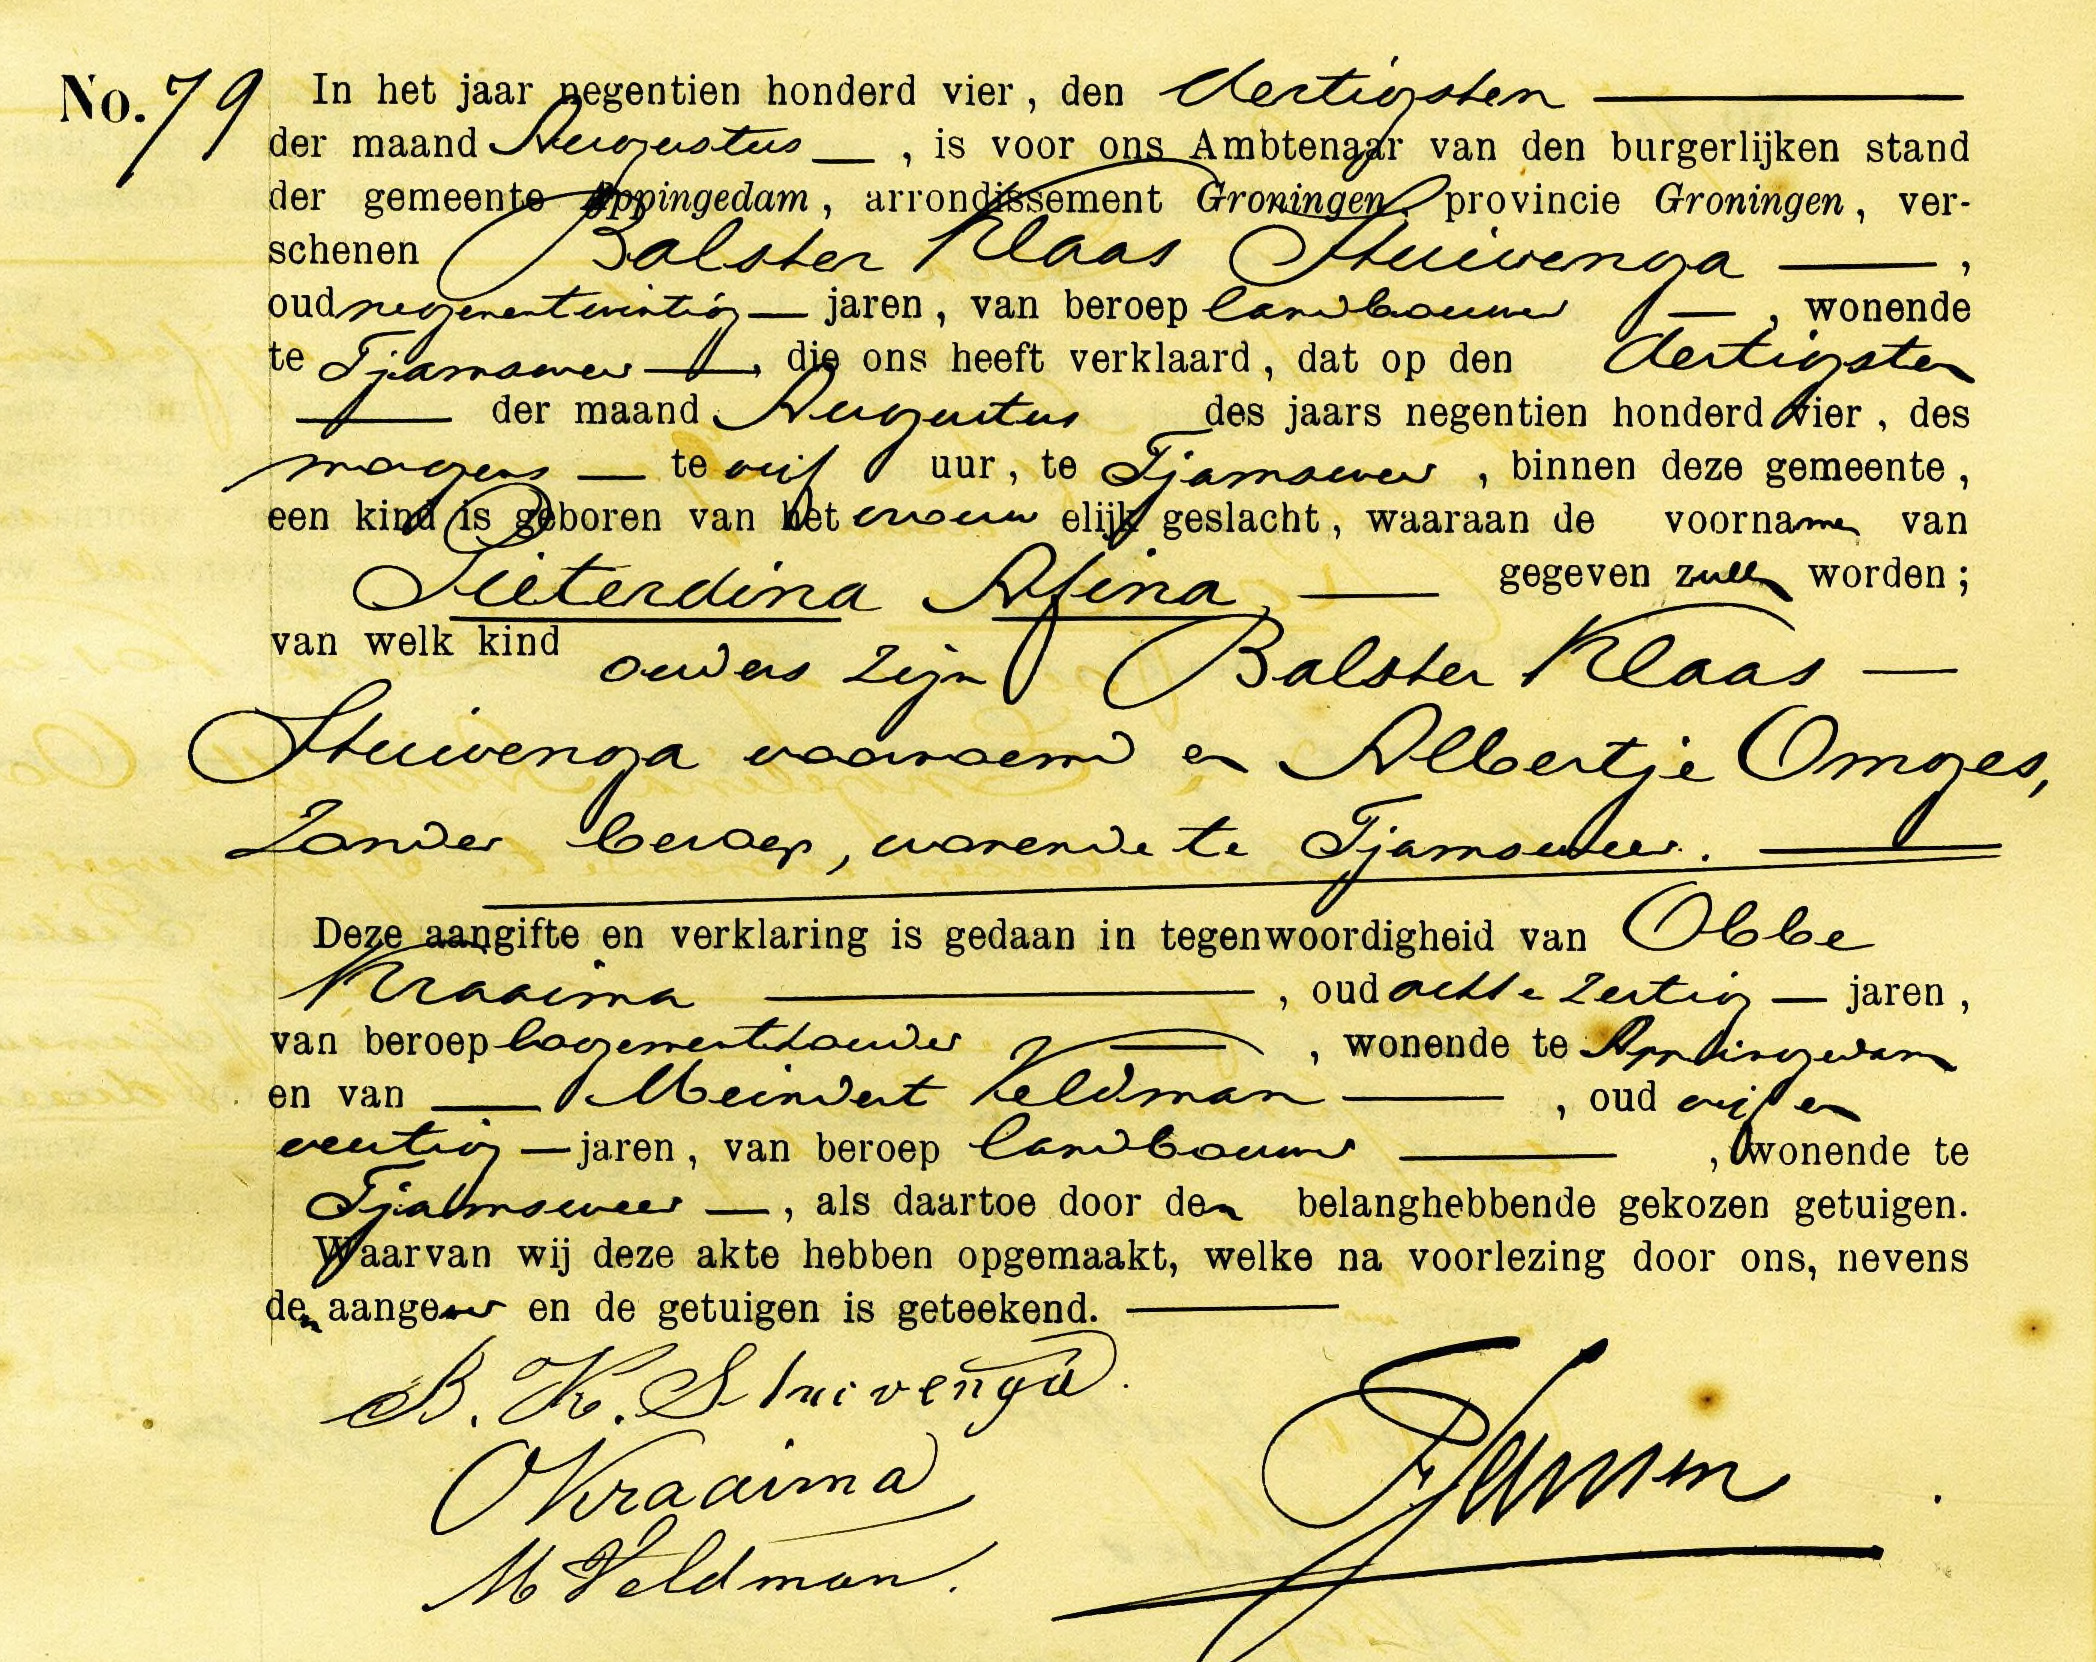 No. 79 In het jaar negentien honderd vier, den dertigsten
der maand Augustus, is voor ons Ambtenaar van den burgerlijken stand
der gemeente Appingedam, arrondissement Groningen, provincie Groningen, ver-
schenen Balster Klaas Stuivenga,
oud negenentwintig jaren, van beroep landbouwer, wonende
te Tjamsweer, die ons heeft verklaard, dat op den dertigsten
der maand Augustus des jaars negentien honderd vier, des
morgens te vijf uur, te Tjamsweer, binnen deze gemeente,
een kind is geboren van het vrouwelijk geslacht, waaraan de voornamen van
Pieterdina Afina gegeven zullen worden;
van welk kind ouders zijn Balster Klaas
Stuivenga voornoemd en Albertje Omges,
zonder beroep, wonende te Tjamsweer.
Deze aangifte en verklaring is gedaan in tegenwoordigheid van Obbe
Kraaima, oud achtenzestig jaren,
van beroep logementhouder, wonende te Appingedam
en van Meindert Veldman, oud vijf en
veertig jaren, van beroep landbouwer, wonende te
Tjamsweer, als daartoe door den belanghebbende gekozen getuigen.
Waarvan wij deze akte hebben opgemaakt, welke na voorlezing door ons, nevens
den aangever en de getuigen is geteekend.
B. K. Stuivenga.
OKraaima
M Veldman.